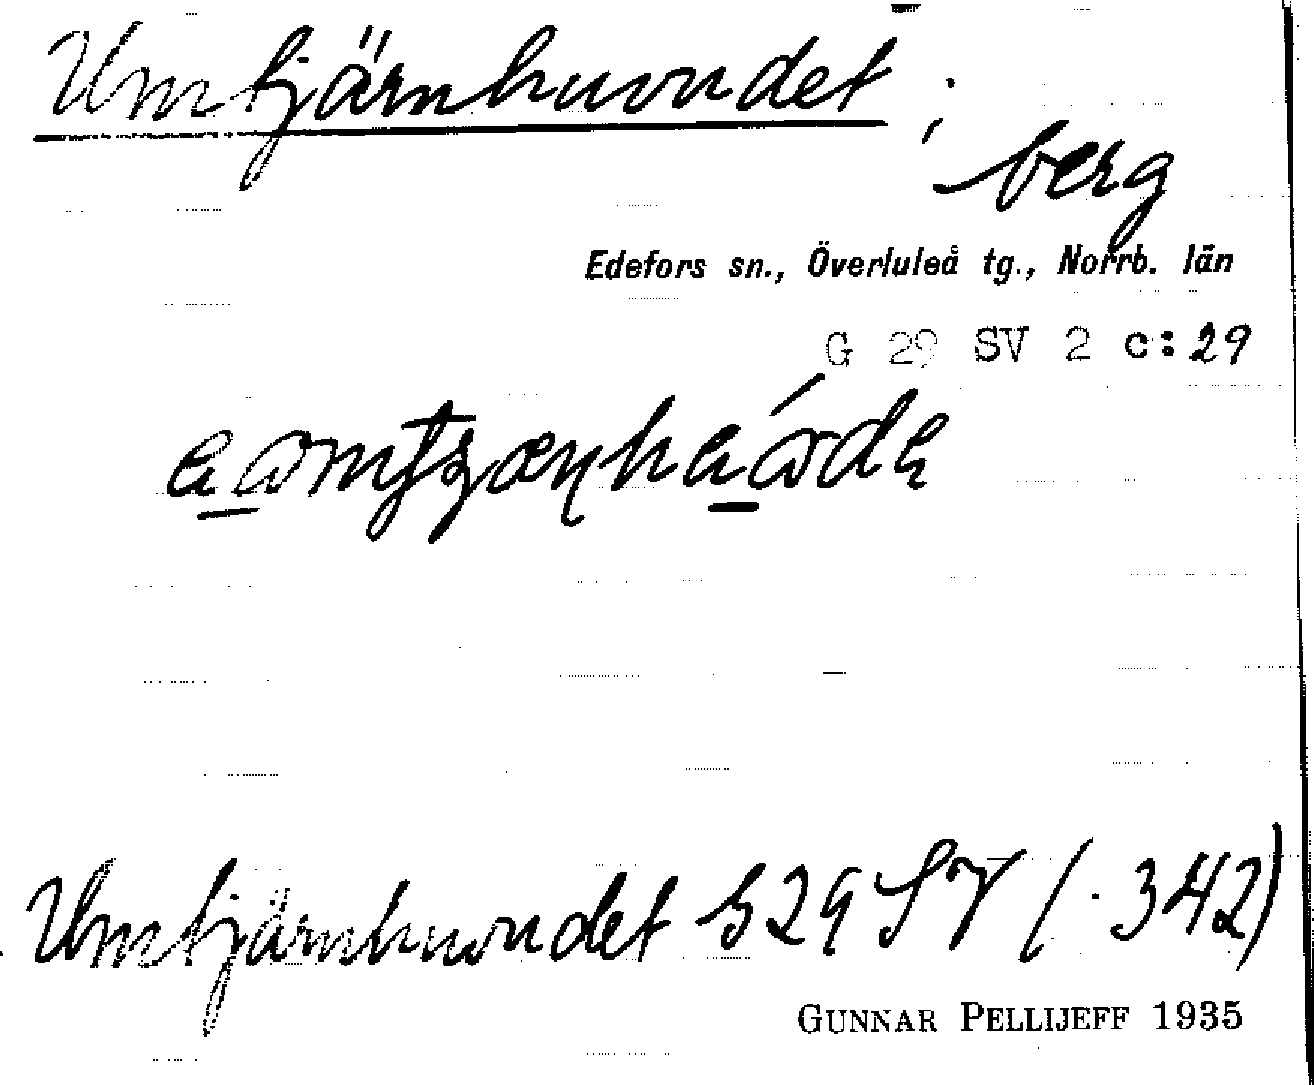 Umtjärnhuvudet ;
berg
Edefors sn., Överluleå tg., Norrb. län
G 29 SV 2 c:29
Umtjärnhuvudet G 29 SV (. 342)
GUNNAR PELLIJEFF 1935